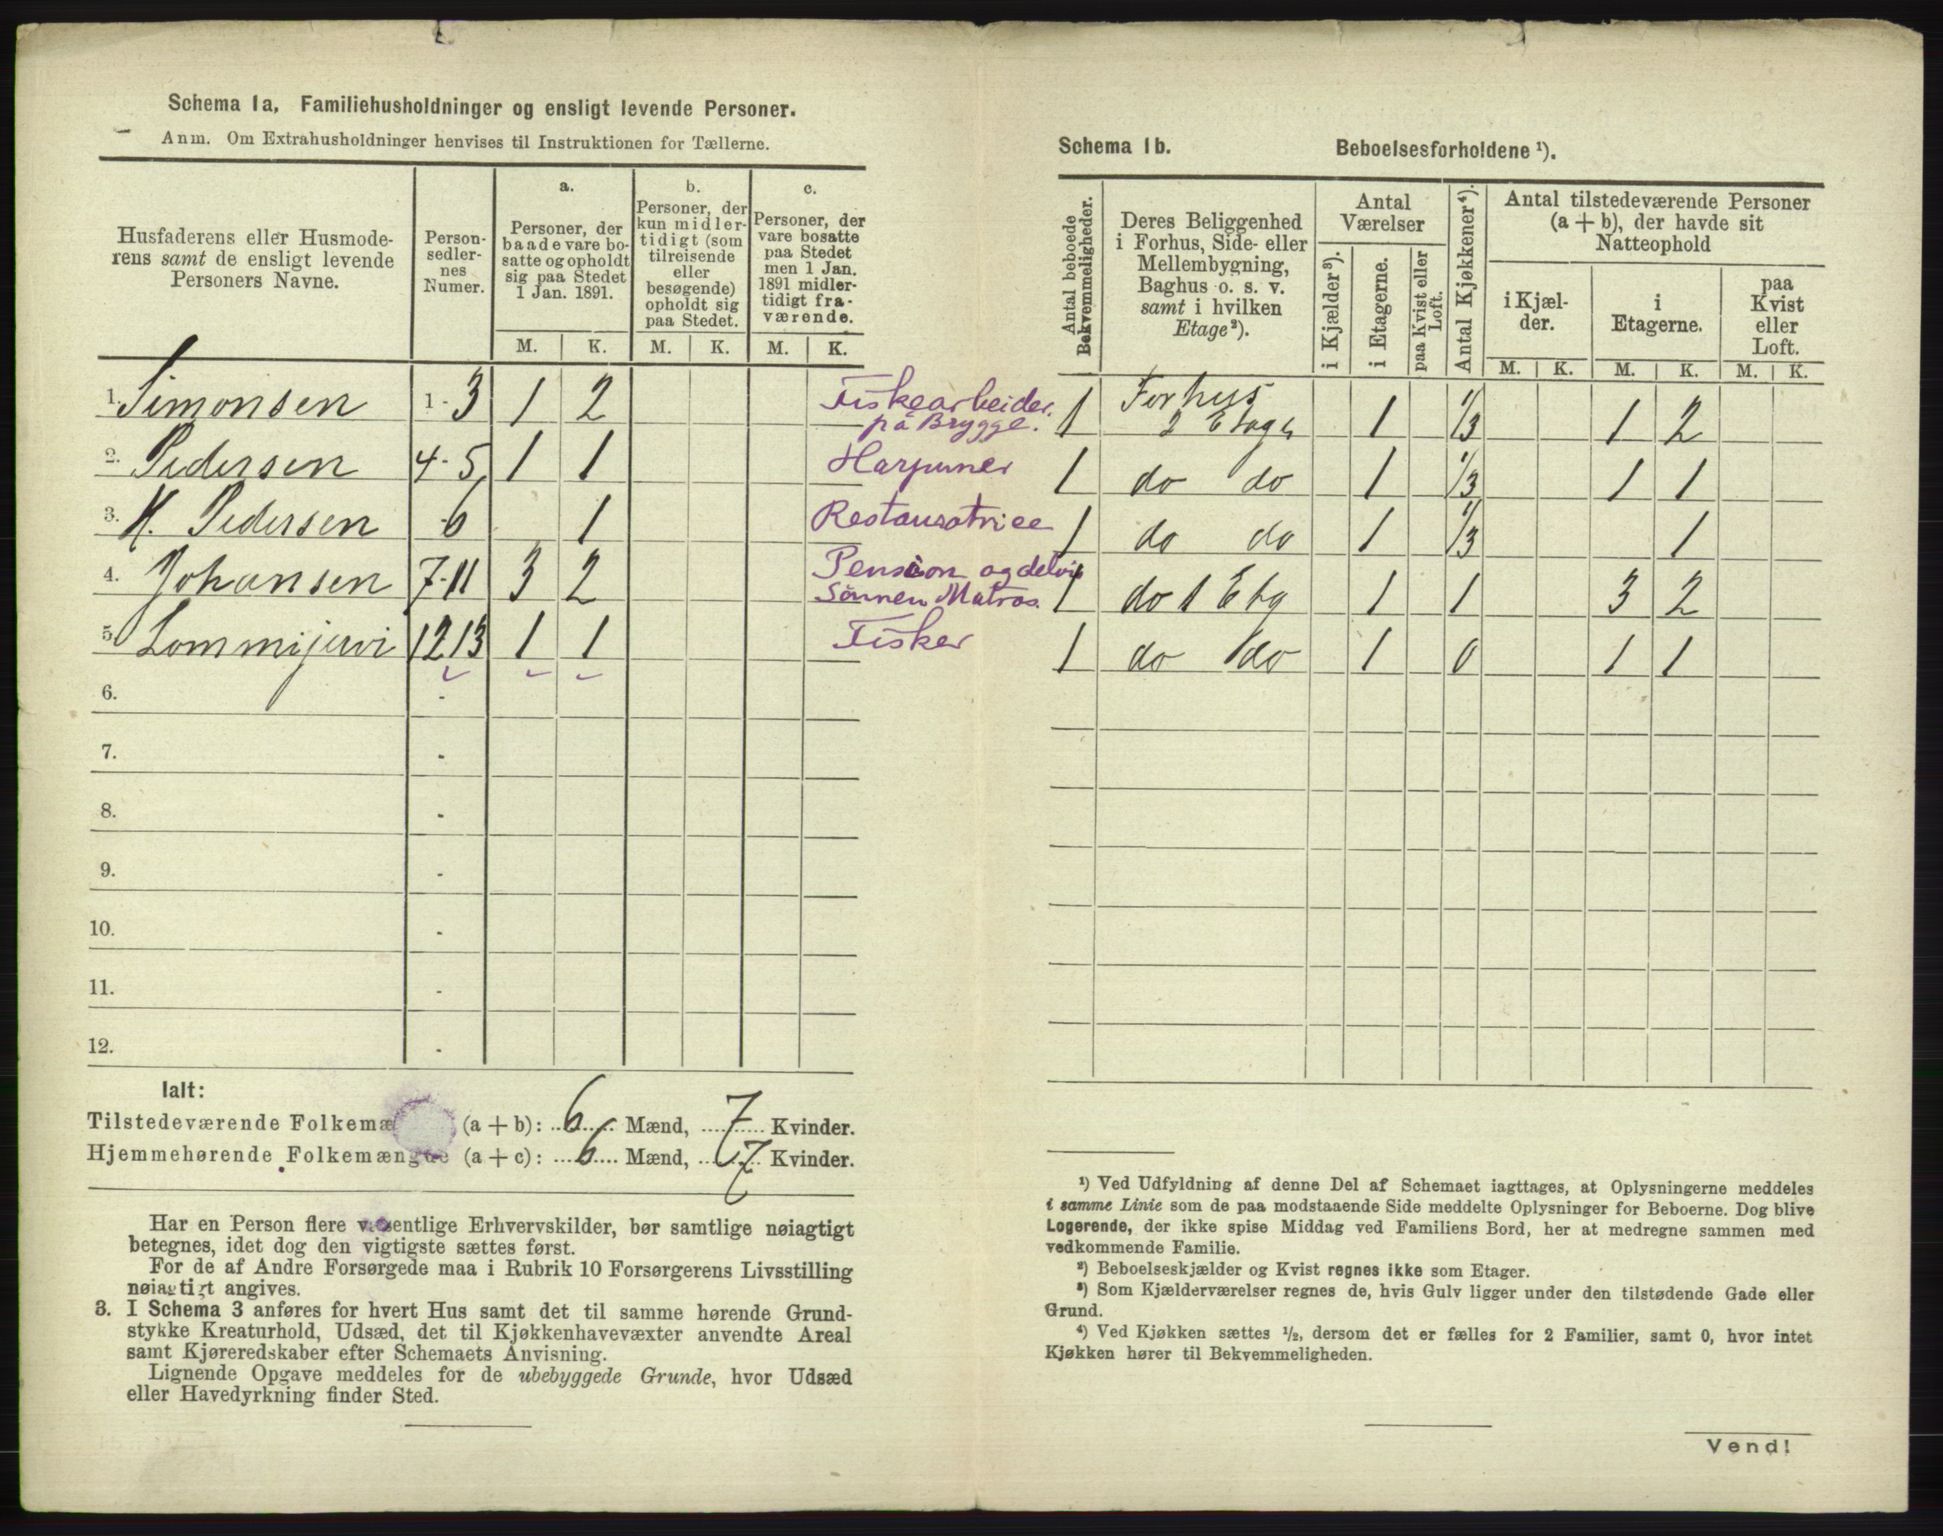 Schema 1a, Familiehusholdninger og ensligt levende Personer.
Anm. Om Extrahusholdninger henvises til Instruktionen for Tællerne.
Husfaderens eller Husmode-
rens samt de ensligt levende
Personers Navne.
Person-
sedler-
nes
Numer.
a.
Personer, der
baade vare bo-
satte og opholdt
sig paa Stedet
1 Jan. 1891.
b.
Personer, der
kun midler-
tidigt (som
tilreisende
eller
besøgende)
opholdt sig
paa Stedet.
c.
Personer, der
vare bosatte
paa Stedet
men 1 Jan.
1891 midler-
tidigt fra-
værende.
M. K. M. K. M. K.
1. Simonsen 1-3 1 2 Fiskearbeider.
på Brygge.
2. Pedersen 4-5 1 1 Harpuner
3. H. Pedersen 6 1 Restauratrice
4. Johansen 7-11 3 2 Pension og delvis
Sönnen Matros.
5. Lommijervi 12 13 1 1 Fisker
6. -
7. -
8. -
9. -
10. -
11. -
12. -
Ialt:
Tilstedeværende Folkemæ (a + b): 6 Mænd, 7 Kvinder.
Hjemmehørende Folkemængde (a + c): 6 Mænd, 7 Kvinder.
Har en Person flere væsentlige Erhvervskilder, bør samtlige nøiagtigt
betegnes, idet dog den vigtigste sættes først.
For de af Andre Forsørgede maa i Rubrik 10 Forsørgerens Livsstilling
nøiagtigt angives.
3. I Schema 3 anføres for hvert Hus samt det til samme hørende Grund-
stykke Kreaturhold, Udsæd, det til Kjøkkenhavevæxter anvendte Areal
samt Kjøreredskaber efter Schemaets Anvisning.
Lignende Opgave meddeles for de ubebyggede Grunde, hvor Udsæd
eller Havedyrkning finder Sted.
Schema 1b. Beboelsesforholdene ¹).
Antal beboede
Bekvemmeligheder.
Deres Beliggenhed
i Forhus, Side- eller
Mellembygning,
Baghus o. s. v.
samt i hvilken
Etage²).
Antal
Værelser
i Kjælder³).
i Etagerne.
paa Kvist eller
Loft.
Antal Kjøkkener⁴).
Antal tilstedeværende Personer
(a + b), der havde sit
Natteophold
i Kjæl-
der.
i
Etagerne.
paa
Kvist
eller
Loft.
M. K. M. K. M. K.
1 Forhus
2 Etage 1 1/3 1 2
1 do do 1 1/3 1 1
1 do do 1 1/3 1
1 do 1 Etg 1 1 3 2
1 do 1 do 1 0 1 1
¹) Ved Udfyldning af denne Del af Schemaet iagttages, at Oplysningerne meddeles
i samme Linie som de paa modstaaende Side meddelte Oplysninger for Beboerne. Dog blive
Logerende, der ikke spise Middag ved Familiens Bord, her at medregne sammen med
vedkommende Familie.
²) Beboelseskjælder og Kvist regnes ikke som Etager.
³) Som Kjælderværelser regnes de, hvis Gulv ligger under den tilstødende Gade eller
Grund.
⁴) Ved Kjøkken sættes ½, dersom det er fælles for 2 Familier, samt 0, hvor intet
Kjøkken hører til Bekvemmeligheden.
Vend!